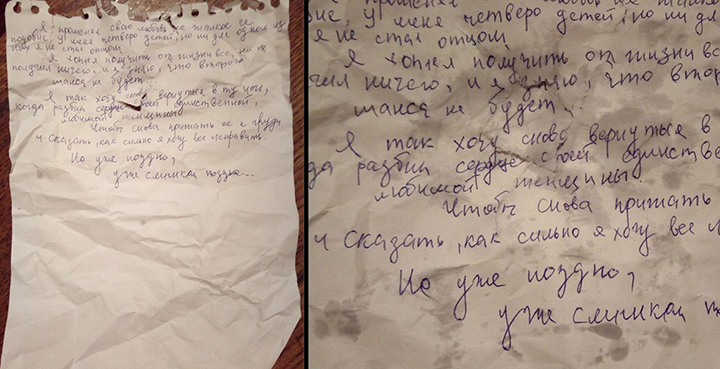 Я променял свою любовь на жалкое ее
подобие, у меня четверо детей, но ни для одного из
них я не стал отцом.
Я хотел получить от жизни все, но не
получил ничего, и я знаю, что второго
шанса не будет.
Я так хочу снова вернуться в ту ночь,
когда разбил сердце своей единственной,
любимой женщины.
Чтобы снова прижать ее к груди
и сказать, как сильно я хочу все исправить
Но уже поздно,
уже слишком поздно...
ие, у меня четверо детей, но ни для
я не стал отцом
Я хотел получить от жизни вс
чил ничего, и я знаю, что втор
шанса не будет.
Я так хочу снова вернуться в
да разбил сердце своей единстве
любимой женщины.
Чтобы снова прижать
и сказать, как сильно я хочу все и
Но уже поздно,
уже слишком по